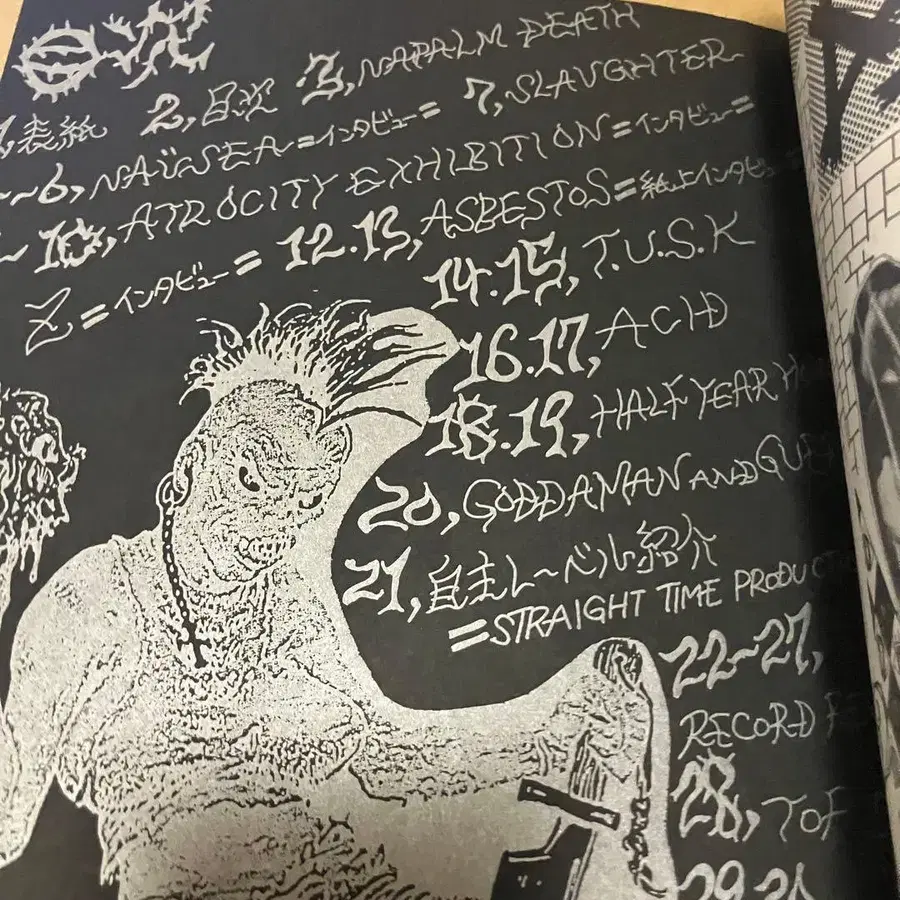 目次
1,表紙 2,目次 3,NAPALM DEATH
~6,NAÜSEA=インタビュー= 7,SLAUGHTER
~10,ATROCITY EXHIBITION=インタビュー=
Z=インタビュー= 12.13,ASBESTOS=紙上インタビュー
14.15,T.U.S.K
16.17,ACID
18.19,HALF YEAR
20,GODDAMAN AND
21,自主レーベル紹介
=STRAIGHT TIME PRODUCT
22~27,
RECORD
28,TOF